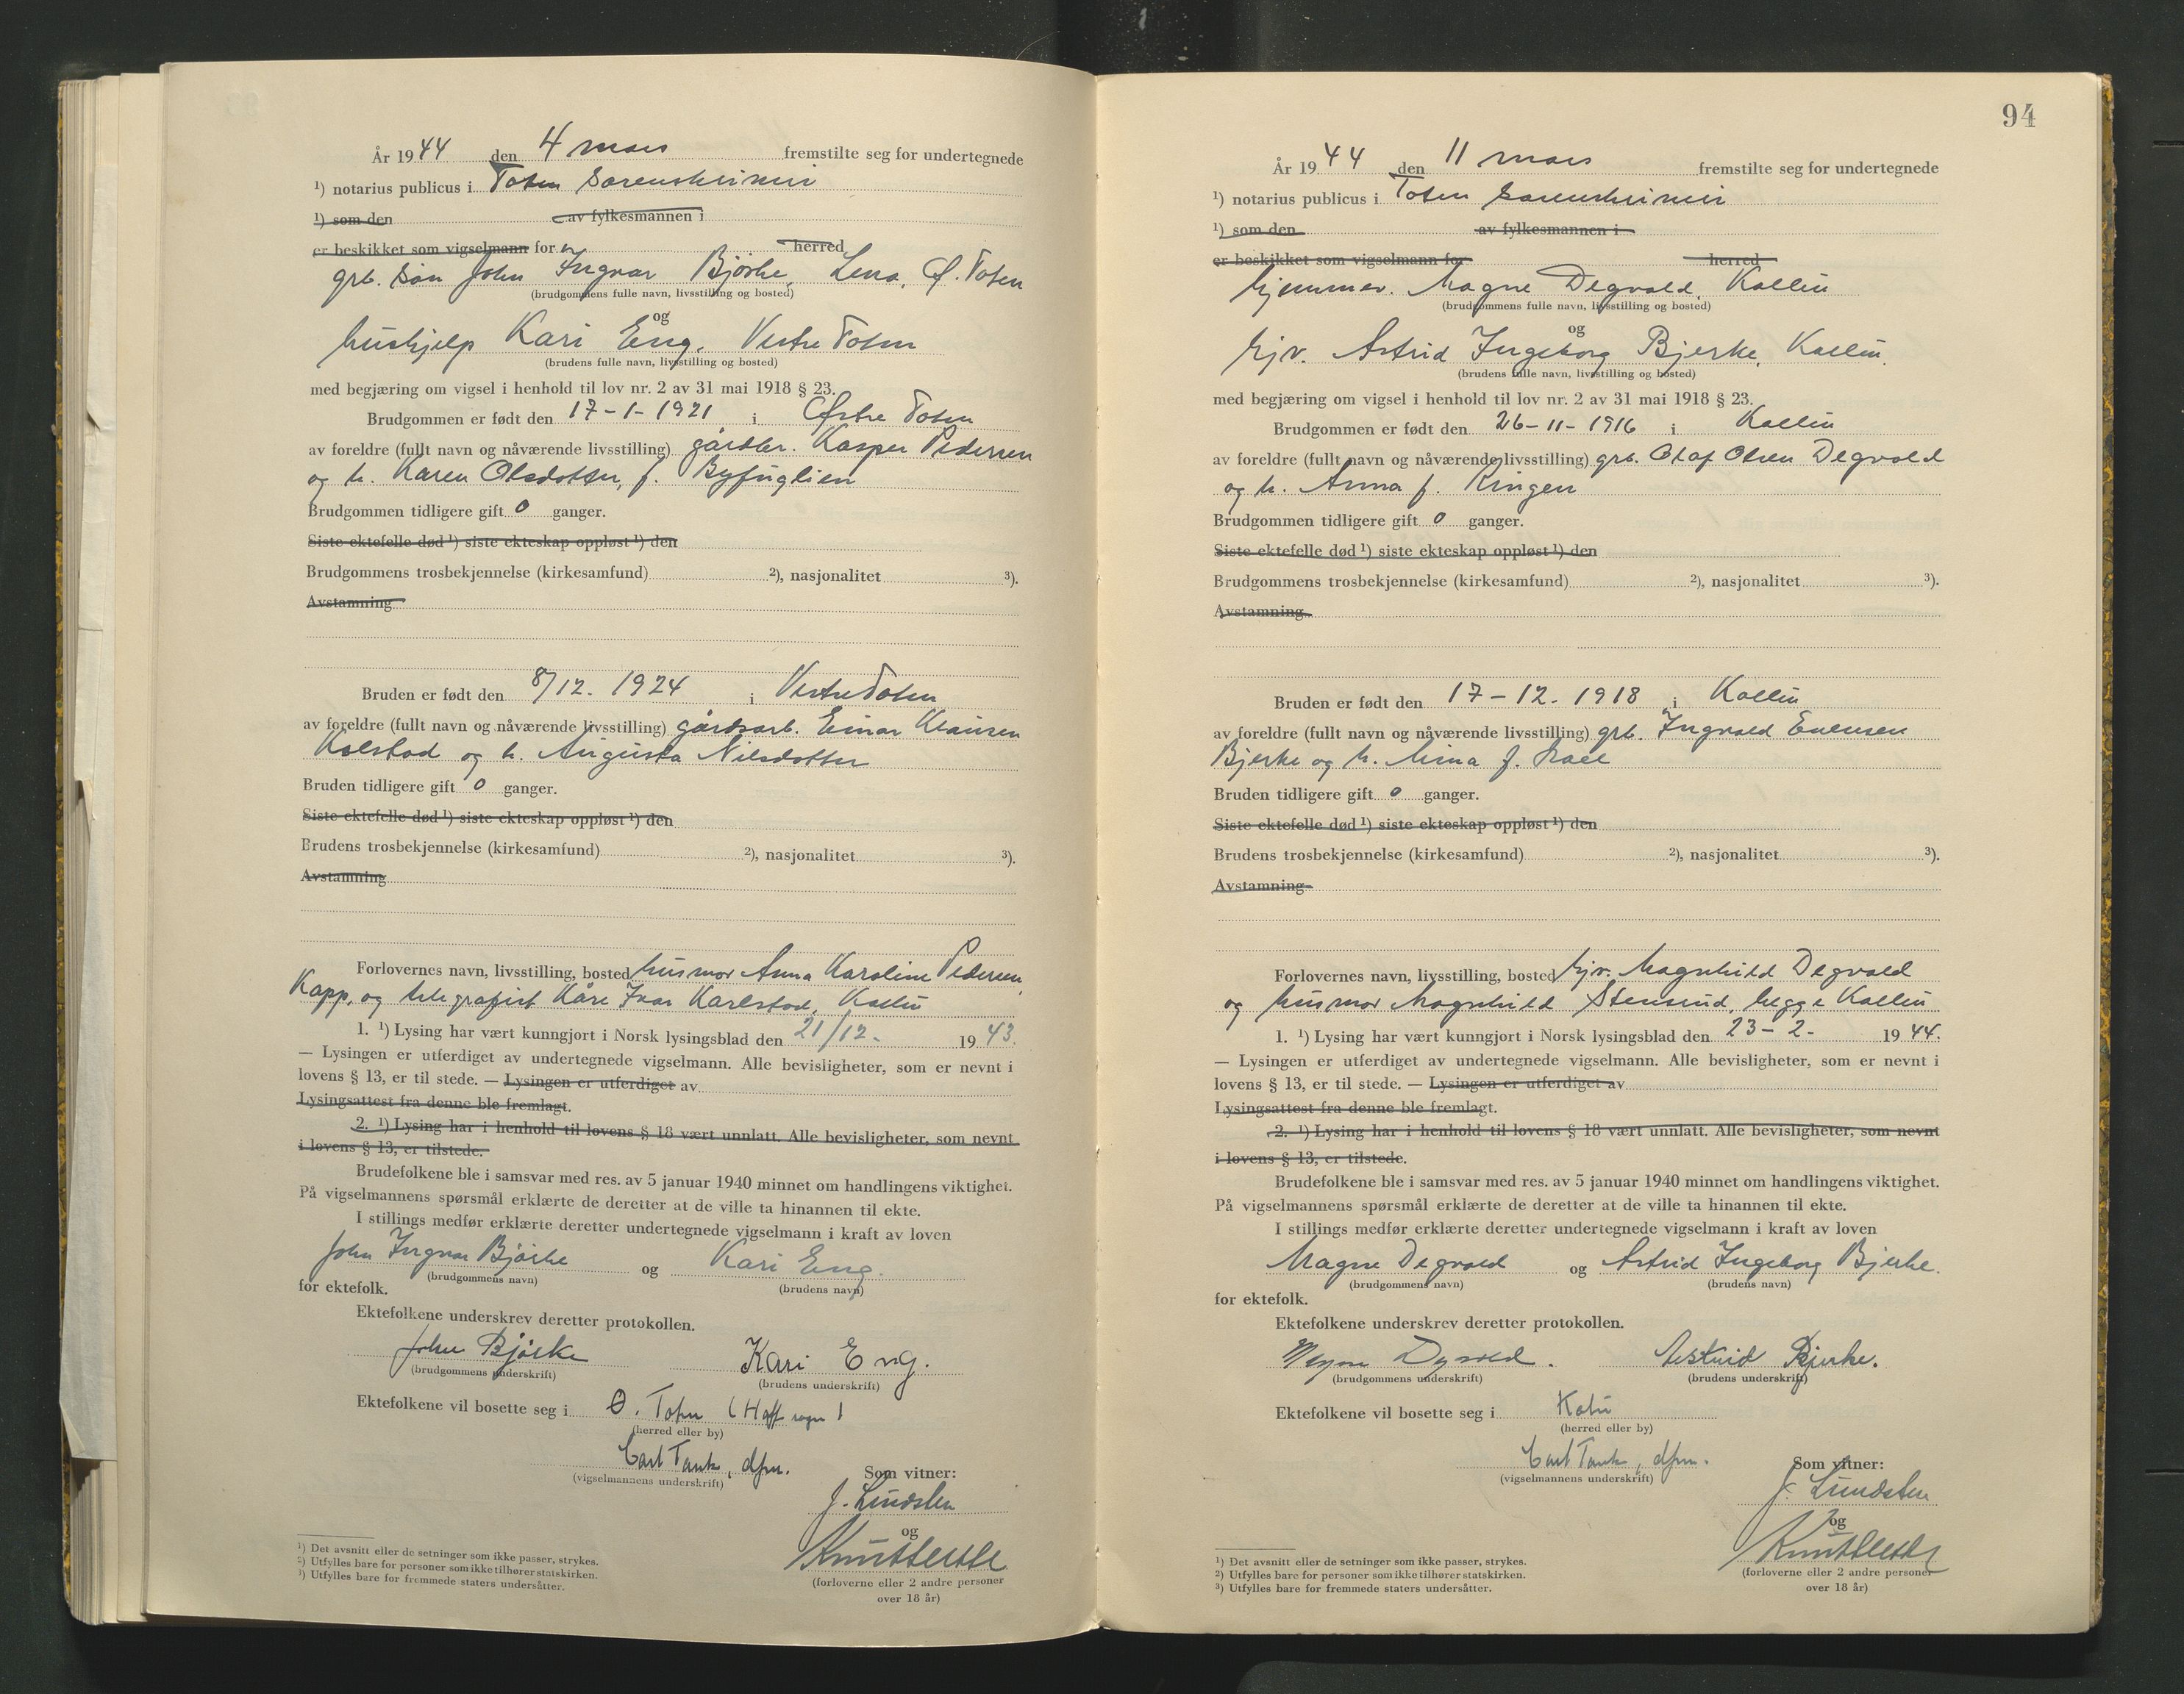 År 1944 den 4 mars fremstilte seg for undertegnede
¹) notarius publicus i Toten Sorenskriveri
¹) som den av fylkesmannen i
er beskikket som vigselmann for herred
grb. søn John Ingvar Bjørke, Lena, Ø. Toten
(brudgommens fulle navn, livsstilling og bosted)
og
hushjelp Kari Eng, Vestre Toten
(brudens fulle navn, livsstilling og bosted)
med begjæring om vigsel i henhold til lov nr. 2 av 31 mai 1918 § 23.
Brudgommen er født den 17-1-1921 i Østre Toten
av foreldre (fullt navn og nåværende livsstilling) gårdbr. Kasper Pedersen
og h. Karen Olsdotter, f. Byfuglien
Brudgommen tidligere gift 0 ganger.
Siste ektefelle død ¹) siste ekteskap oppløst ¹) den
Brudgommens trosbekjennelse (kirkesamfund) ²), nasjonalitet ³).
Avstamning
Bruden er født den 8/12. 1924 i Vestre Toten
av foreldre (fullt navn og nåværende livsstilling) gårdsarb. Einar Klausen
Kolstad og h. Augusta Nilsdotter
Bruden tidligere gift 0 ganger.
Siste ektefelle død ¹) siste ekteskap oppløst ¹) den
Brudens trosbekjennelse (kirkesamfund) ²), nasjonalitet ³).
Avstamning
Forlovernes navn, livsstilling, bosted husmor Anna Karoline Pedersen,
Kapp, og telegrafist Kåre Ivar Karlstad, Kolbu
1. ¹) Lysing har vært kunngjort i Norsk lysingsblad den 21/12. 1943.
— Lysingen er utferdiget av undertegnede vigselmann. Alle bevisligheter, som er nevnt i
lovens § 13, er til stede. — Lysingen er utferdiget av
Lysingsattest fra denne ble fremlagt.
2. ¹) Lysing har i henhold til lovens § 18 vært unnlatt. Alle bevisligheter, som nevnt
i lovens § 13, er tilstede.
Brudefolkene ble i samsvar med res. av 5 januar 1940 minnet om handlingens viktighet.
På vigselmannens spørsmål erklærte de deretter at de ville ta hinannen til ekte.
I stillings medfør erklærte deretter undertegnede vigselmann i kraft av loven
John Ingvar Bjørke og Kari Eng.
(brudgommens navn) (brudens navn)
for ektefolk.
Ektefolkene underskrev deretter protokollen.
John Bjørke Kari Eng.
(brudgommens underskrift) (brudens underskrift)
Ektefolkene vil bosette seg i Ø. Toten (Hoff sogn)
(herred eller by)
Carl Tank, dfm.
(vigselmannens underskrift)
Som vitner:
J. Lundsten
og
(forloverne eller 2 andre personer
over 18 år)
¹) Det avsnitt eller de setninger som ikke passer, strykes.
²) Utfylles bare for personer som ikke tilhører statskirken.
³) Utfylles bare for fremmede staters undersåtter.
94
År 1944 den 11 mars fremstilte seg for undertegnede
¹) notarius publicus i Toten Sorenskriveri
¹) som den av fylkesmannen i
er beskikket som vigselmann for herred
hjemmev. Magne Degvold, Kolbu
(brudgommens fulle navn, livsstilling og bosted)
og
hjv. Astrid Ingeborg Bjerke, Kolbu
(brudens fulle navn, livsstilling og bosted)
med begjæring om vigsel i henhold til lov nr. 2 av 31 mai 1918 § 23.
Brudgommen er født den 26-11-1916 i Kolbu
av foreldre (fullt navn og nåværende livsstilling) grb. Olaf Olsen Degvold
og h. Anna f. Ringen
Brudgommen tidligere gift 0 ganger.
Siste ektefelle død ¹) siste ekteskap oppløst ¹) den
Brudgommens trosbekjennelse (kirkesamfund) ²), nasjonalitet ³).
Avstamning
Bruden er født den 17-12. 1918 i Kolbu
av foreldre (fullt navn og nåværende livsstilling) grb. Ingvald Evensen
Bjerke og h. Mina f.
Bruden tidligere gift 0 ganger.
Siste ektefelle død ¹) siste ekteskap oppløst ¹) den
Brudens trosbekjennelse (kirkesamfund) ²), nasjonalitet ³).
Avstamning
Forlovernes navn, livsstilling, bosted hjv. Magnhild Degvold
og husmor Magnhild Stensrud, begge Kolbu
1. ¹) Lysing har vært kunngjort i Norsk lysingsblad den 23-2- 1944.
— Lysingen er utferdiget av undertegnede vigselmann. Alle bevisligheter, som er nevnt i
lovens § 13, er til stede. — Lysingen er utferdiget av
Lysingsattest fra denne ble fremlagt.
2. ¹) Lysing har i henhold til lovens § 18 vært unnlatt. Alle bevisligheter, som nevnt
i lovens § 13, er tilstede.
Brudefolkene ble i samsvar med res. av 5 januar 1940 minnet om handlingens viktighet.
På vigselmannens spørsmål erklærte de deretter at de ville ta hinannen til ekte.
I stillings medfør erklærte deretter undertegnede vigselmann i kraft av loven
Magne Degvold og Astrid Ingeborg Bjerke.
(brudgommens navn) (brudens navn)
for ektefolk.
Ektefolkene underskrev deretter protokollen.
Magne Degvold. Astrid Bjerke.
(brudgommens underskrift) (brudens underskrift)
Ektefolkene vil bosette seg i Kolbu
(herred eller by)
Carl Tank, dfm.
(vigselmannens underskrift)
Som vitner:
J. Lundsten
og
(forloverne eller 2 andre personer
over 18 år)
¹) Det avsnitt eller de setninger som ikke passer, strykes.
²) Utfylles bare for personer som ikke tilhører statskirken.
³) Utfylles bare for fremmede staters undersåtter.